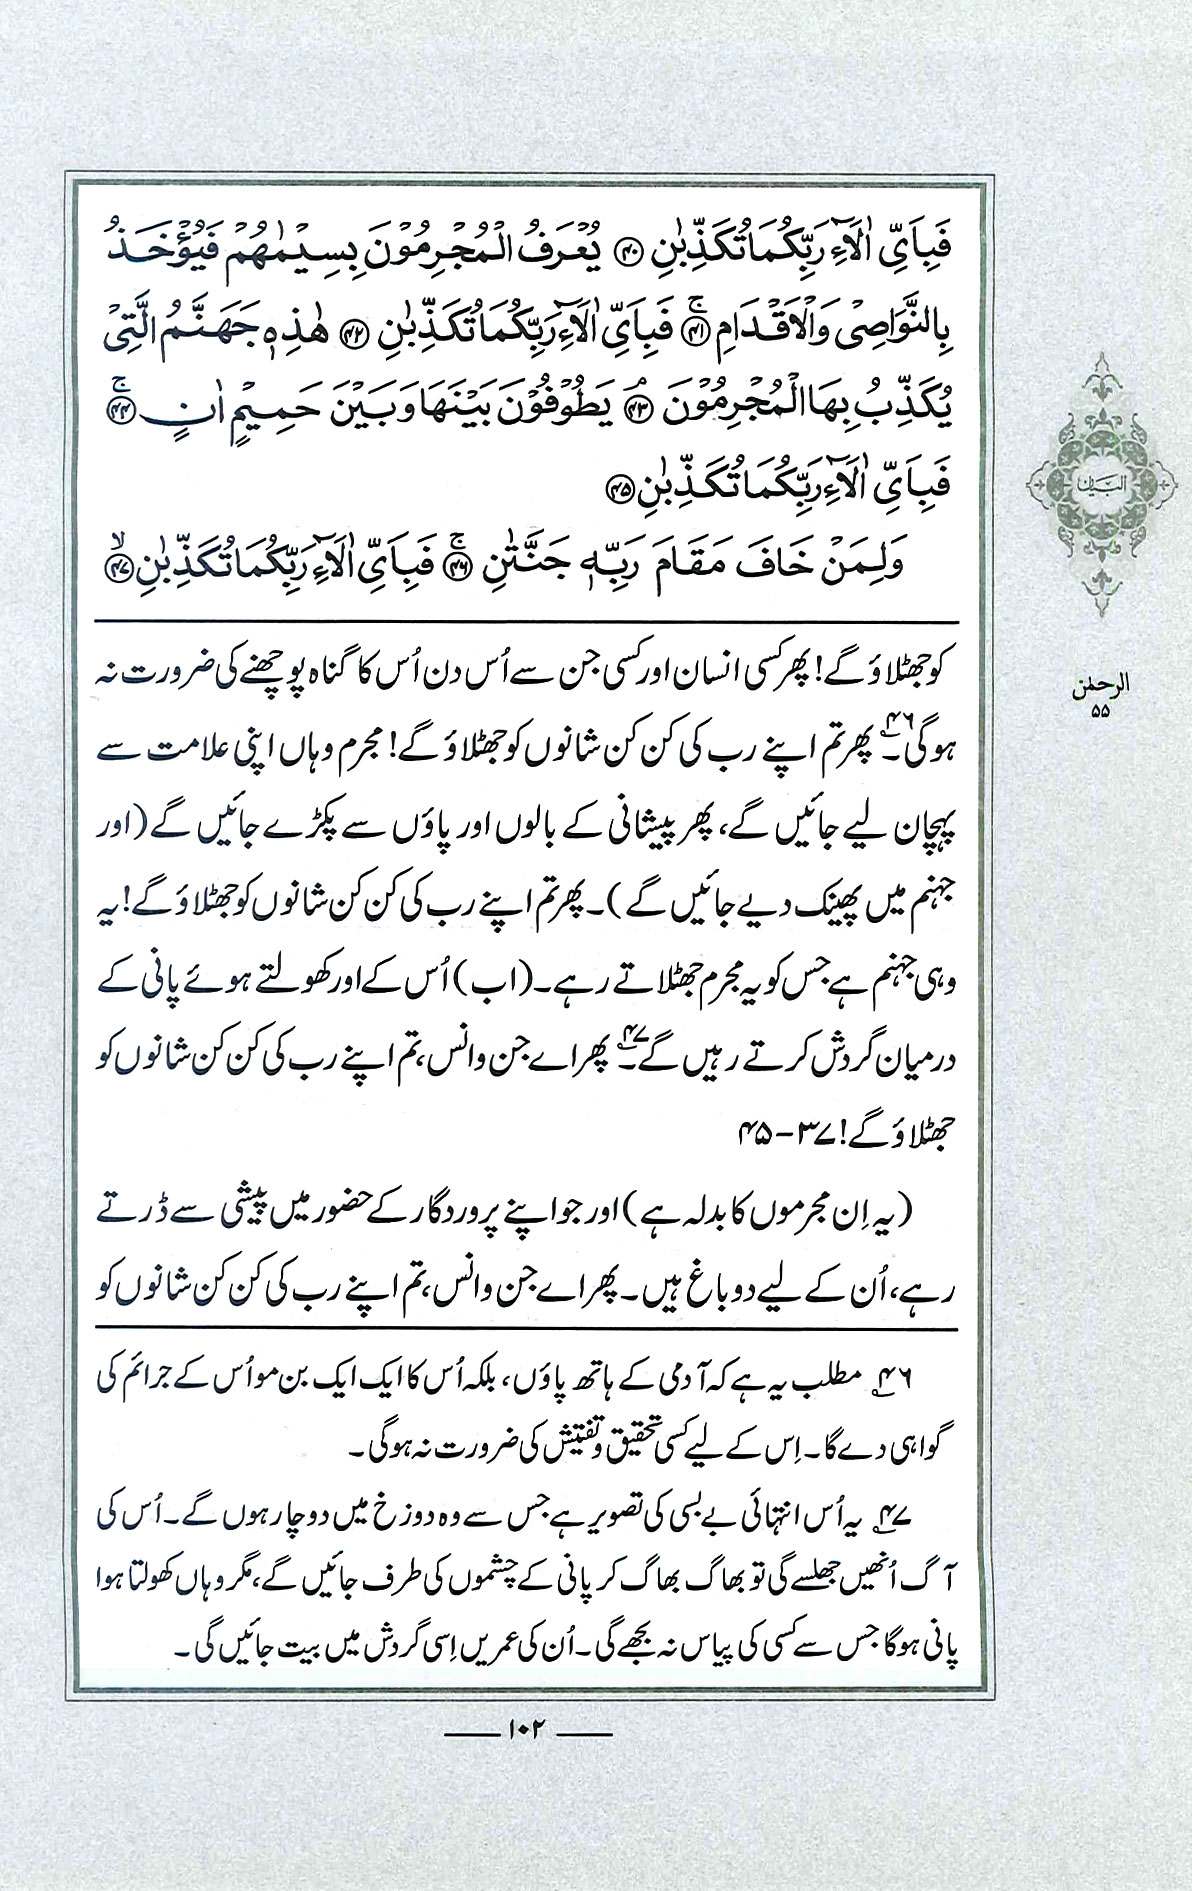 فَبِاَيِّ اٰلَآءِ رَبِّكُمَا تُكَذِّبٰنِ ﴿۴۰﴾ يُعْرَفُ الْمُجْرِمُوْنَ بِسِيْمٰهُمْ فَيُؤْخَذُ
بِالنَّوَاصِيْ وَالْاَقْدَامِ ﴿۴۱﴾ۚ فَبِاَيِّ اٰلَآءِ رَبِّكُمَا تُكَذِّبٰنِ ﴿۴۲﴾ هٰذِهٖ جَهَنَّمُ الَّتِيْ
يُكَذِّبُ بِهَا الْمُجْرِمُوْنَ ﴿۴۳﴾ۘ يَطُوْفُوْنَ بَيْنَهَا وَبَيْنَ حَمِيْمٍ اٰنٍ ﴿۴۴﴾ۚ
فَبِاَيِّ اٰلَآءِ رَبِّكُمَا تُكَذِّبٰنِ ﴿۴۵﴾
وَلِمَنْ خَافَ مَقَامَ رَبِّهٖ جَنَّتٰنِ ﴿۴۶﴾ۚ فَبِاَيِّ اٰلَآءِ رَبِّكُمَا تُكَذِّبٰنِ ﴿۴۷﴾ۙ
البیان
الرحمٰن
۵۵
کو جھٹلاؤ گے! پھر کسی انسان اور کسی جن سے اُس دن اُس کا گناہ پوچھنے کی ضرورت نہ
ہو گی۔۴۶ پھر تم اپنے رب کی کن کن شانوں کو جھٹلاؤ گے! مجرم وہاں اپنی علامت سے
پہچان لیے جائیں گے، پھر پیشانی کے بالوں اور پاؤں سے پکڑے جائیں گے (اور
جہنم میں پھینک دیے جائیں گے)۔ پھر تم اپنے رب کی کن کن شانوں کو جھٹلاؤ گے! یہ
وہی جہنم ہے جس کو یہ مجرم جھٹلاتے رہے۔ (اب) اُس کے اور کھولتے ہوئے پانی کے
درمیان گردش کرتے رہیں گے۔۴۷ پھر اے جن وانس، تم اپنے رب کی کن کن شانوں کو
جھٹلاؤ گے! ۳۷-۴۵
(یہ اِن مجرموں کا بدلہ ہے) اور جو اپنے پروردگار کے حضور میں پیشی سے ڈرتے
رہے، اُن کے لیے دو باغ ہیں۔ پھر اے جن وانس، تم اپنے رب کی کن کن شانوں کو
۴۶ مطلب یہ ہے کہ آدمی کے ہاتھ پاؤں، بلکہ اُس کا ایک ایک بن مو اُس کے جرائم کی
گواہی دے گا۔ اِس کے لیے کسی تحقیق وتفتیش کی ضرورت نہ ہو گی۔
۴۷ یہ اُس انتہائی بے بسی کی تصویر ہے جس سے وہ دوزخ میں دوچار ہوں گے۔ اُس کی
آگ اُنھیں جھلسے گی تو بھاگ بھاگ کر پانی کے چشموں کی طرف جائیں گے، مگر وہاں کھولتا ہوا
پانی ہو گا جس سے کسی کی پیاس نہ بجھے گی۔ اُن کی عمریں اِسی گردش میں بیت جائیں گی۔
۱۰۲